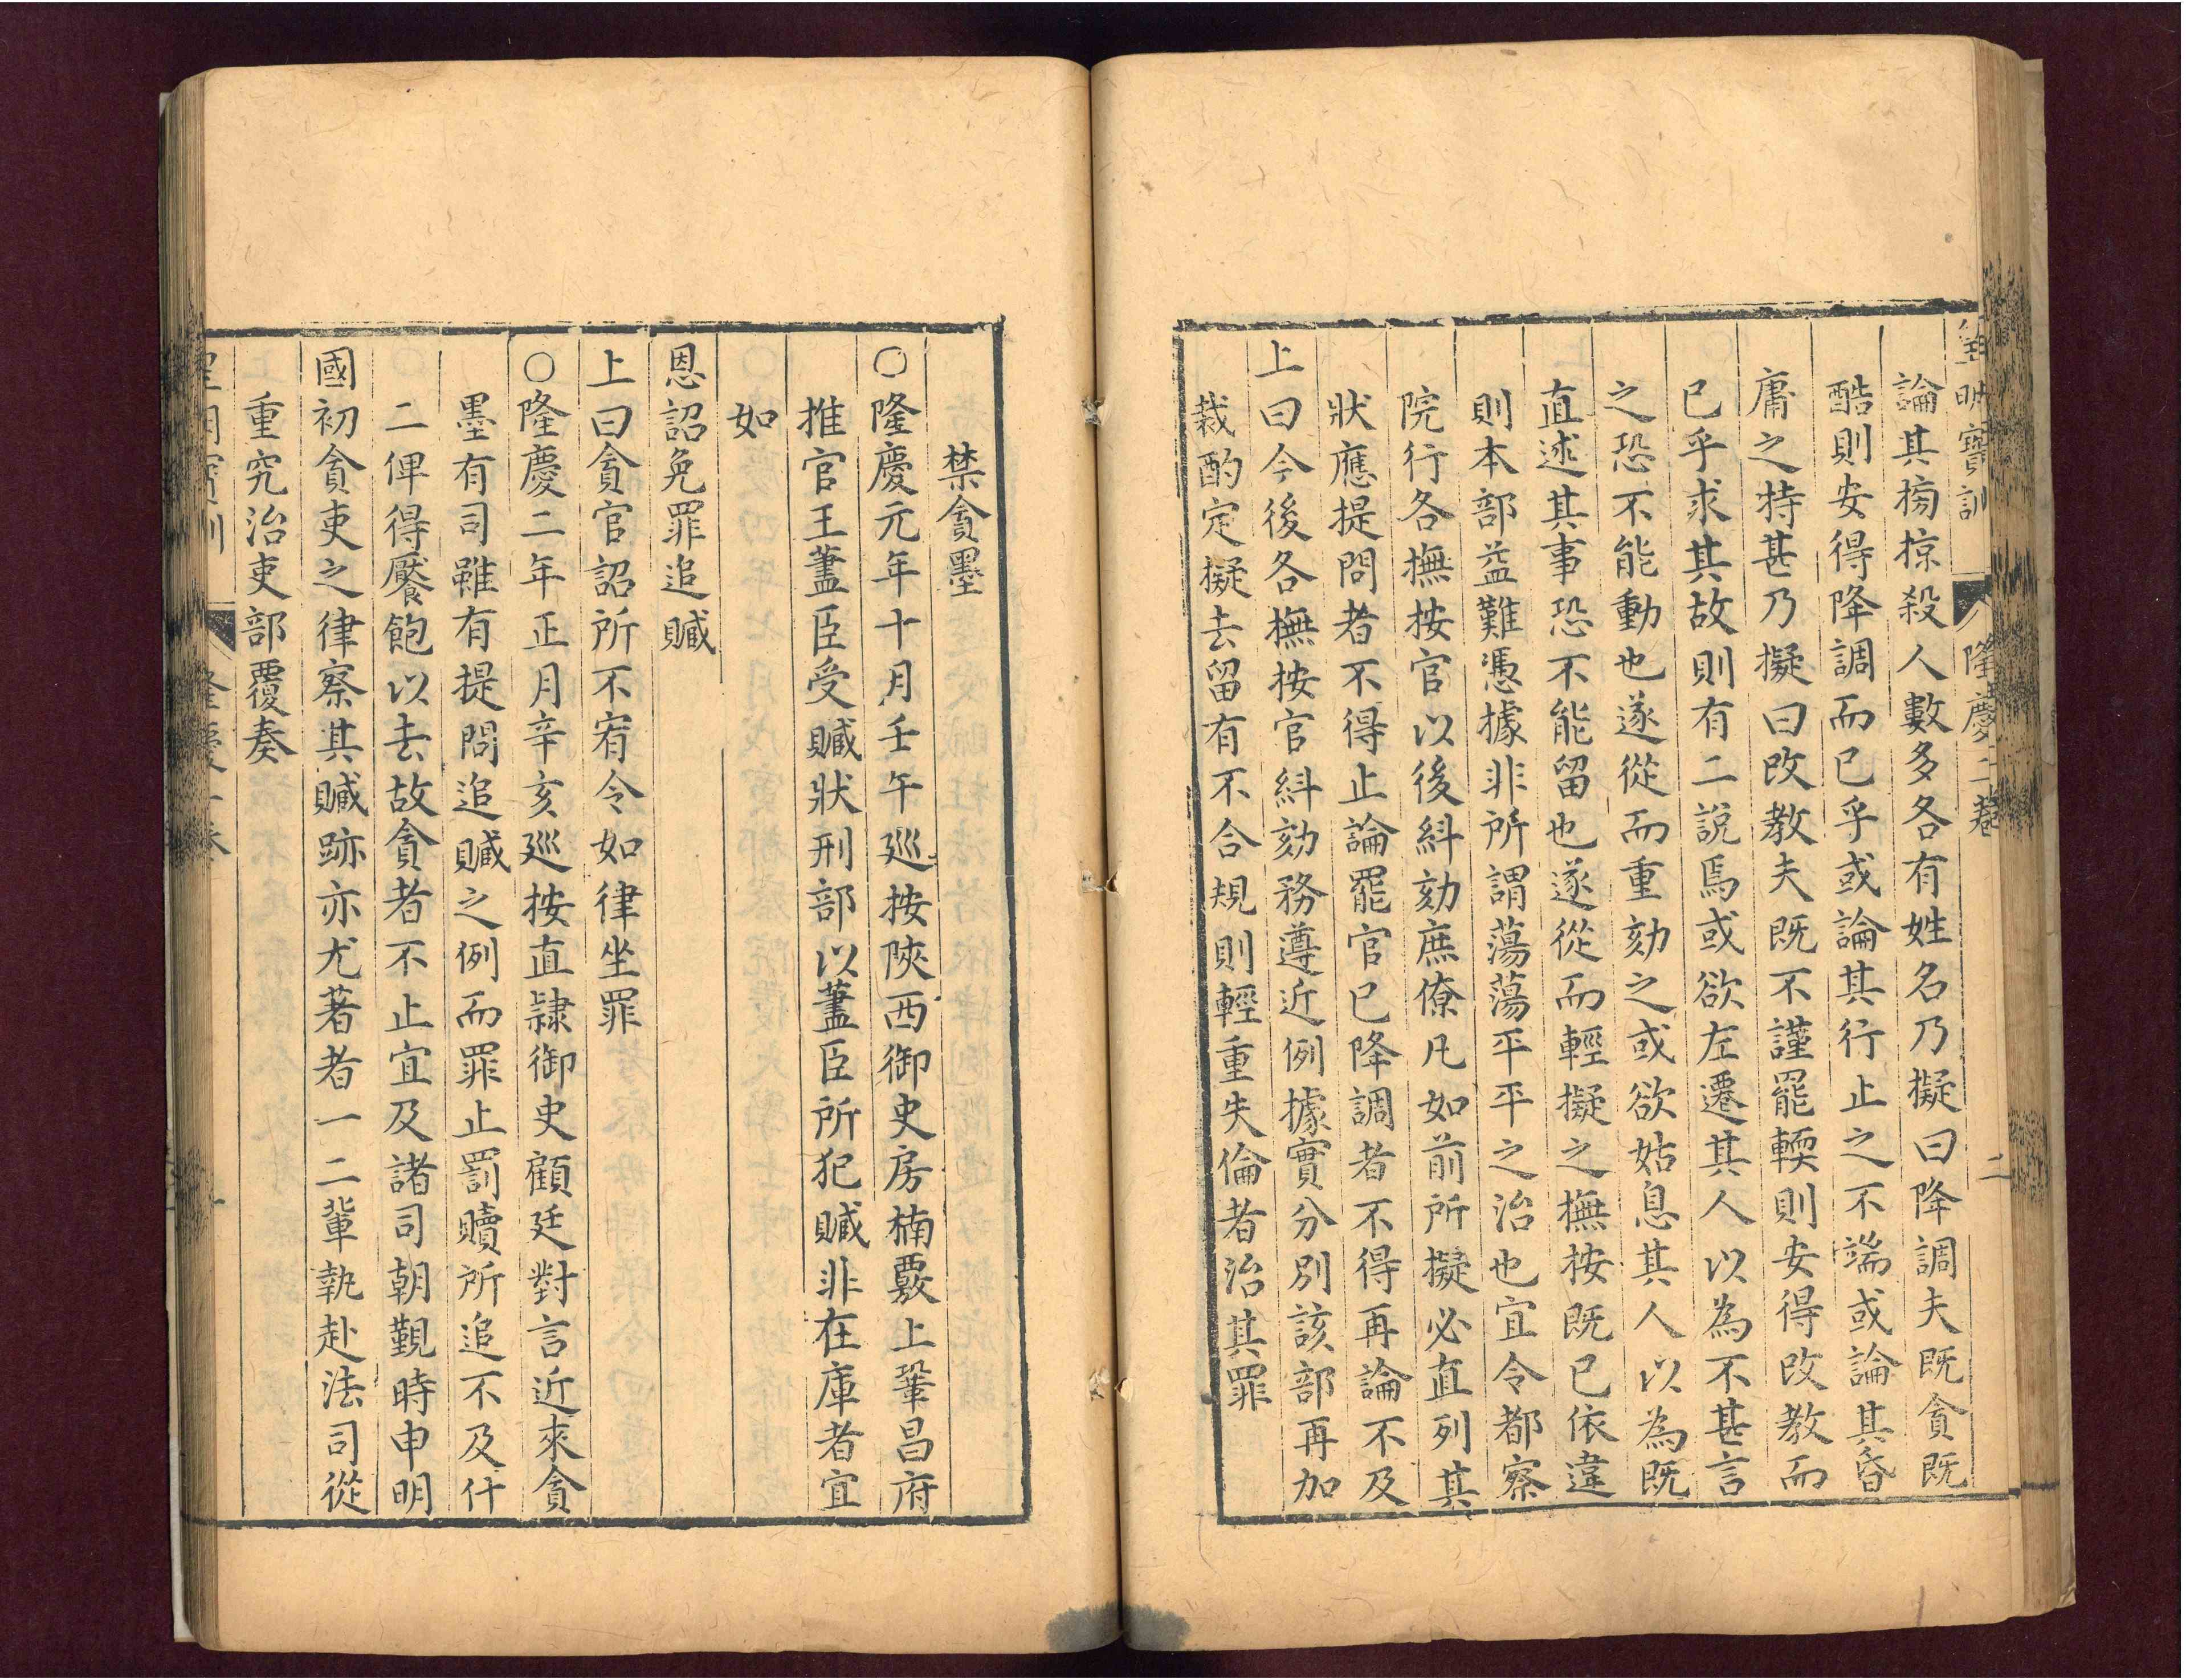 皇明寶訓 隆慶二卷 二
論其搒掠殺人數多各有姓名乃擬曰降調夫既貪既
酷則安得降調而已乎或論其行止之不端或論其昏
庸之特甚乃擬曰改教夫既不謹罷輭則安得改教而
已乎求其故則有二說焉或欲左遷其人以為不甚言
之恐不能動也遂從而重劾之或欲姑息其人以為既
直述其事恐不能留也遂從而輕擬之撫按既已依違
則本部益難憑據非所謂蕩蕩平平之治也宜令都察
院行各撫按官以後糾劾庶僚凡如前所擬必直列其
狀應提問者不得止論罷官已降調者不得再論不及
上曰今後各撫按官糾劾務遵近例據實分別該部再加
裁酌定擬去留有不合規則輕重失倫者治其罪
禁貪墨
○隆慶元年十月壬午廵按陝西御史房楠覈上鞏昌府
推官王藎臣受贓狀刑部以藎臣所犯贓非在庫者宜
如
恩詔免罪追贓
上曰貪官詔所不宥令如律坐罪
○隆慶二年正月辛亥廵按直隷御史顧廷對言近來貪
墨有司雖有提問追贓之例而罪止罰贖所追不及什
二俾得饜飽以去故貪者不止宜及諸司朝覲時申明
國初貪吏之律察其贓跡亦尤著者一二輩執赴法司從
重究治吏部覆奏